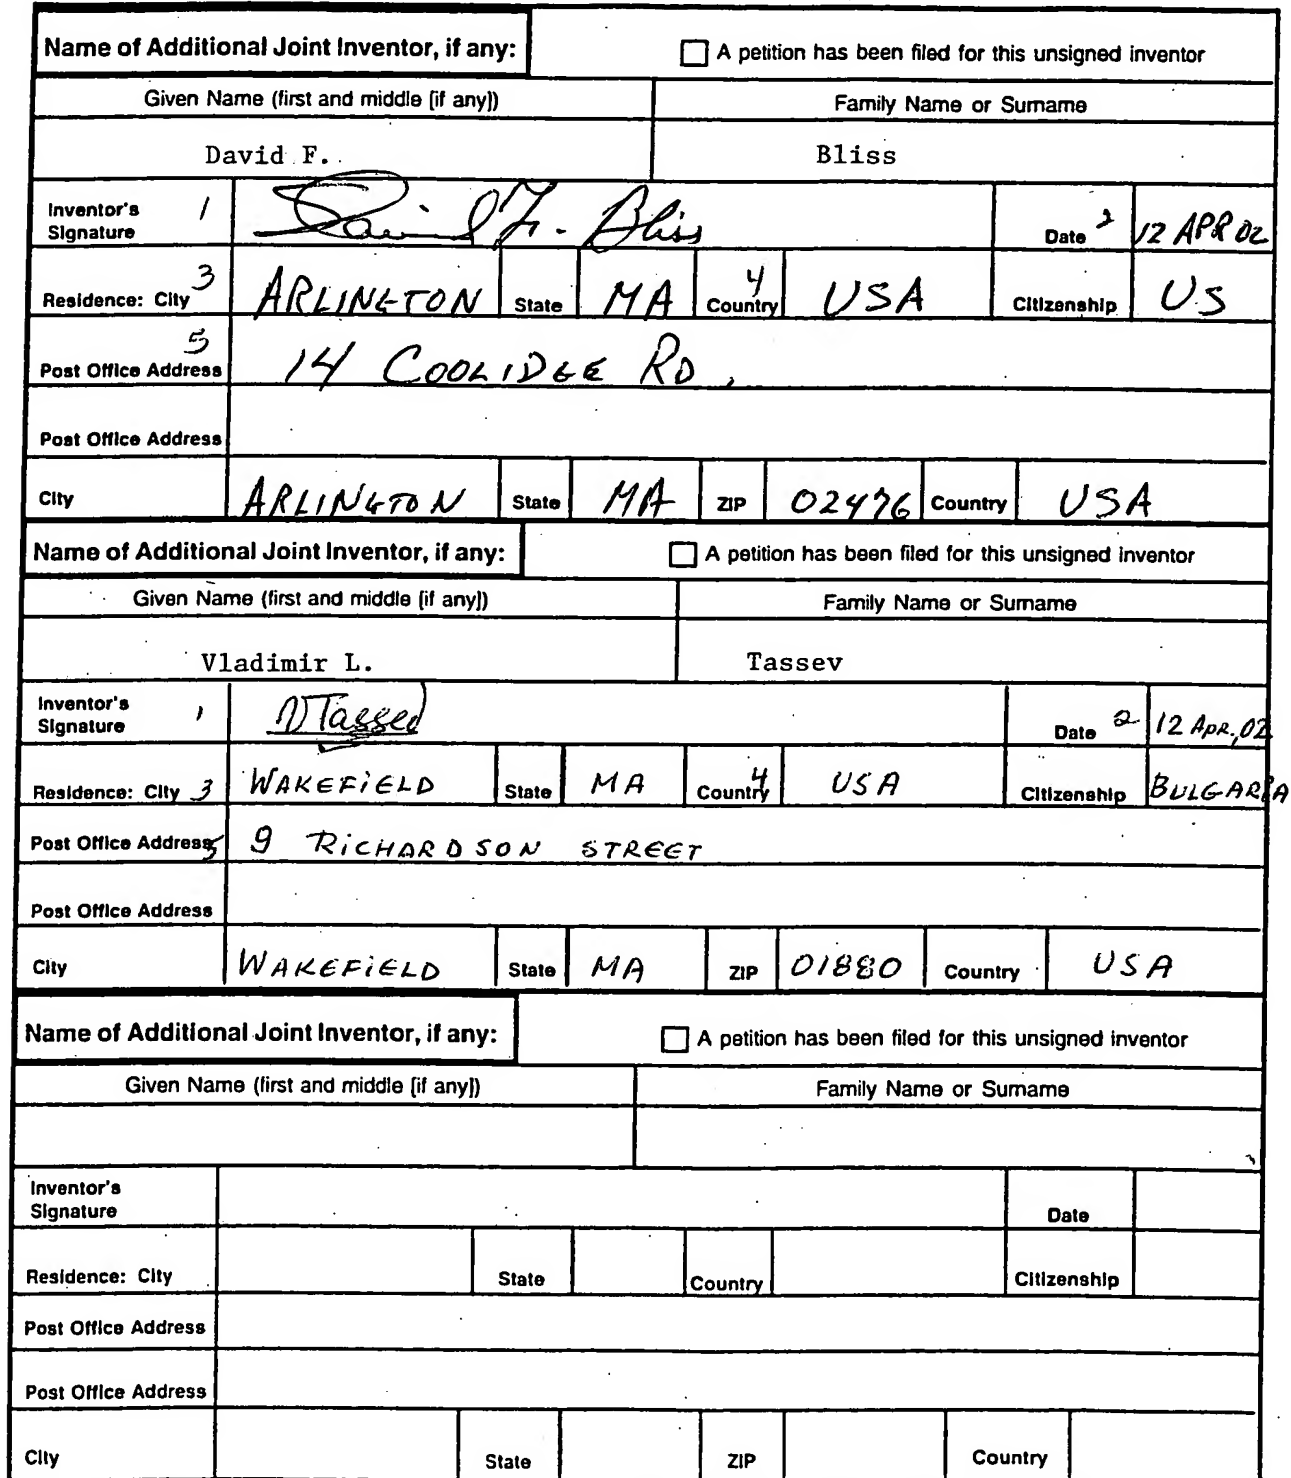 Name of Additional Joint Inventor, if any: A petition has been filed for this unsigned inventor
Given Name (first and middle [if any]) Family Name or Surname
David F. Bliss
Inventor's Signature 1 David F. Bliss Date 2 12 APR 02
Residence: City 3 ARLINGTON State MA Country 4 USA Citizenship US
Post Office Address 5 14 COOLIDGE RD,
Post Office Address
City ARLINGTON State MA ZIP 02476 Country USA
Name of Additional Joint Inventor, if any: A petition has been filed for this unsigned inventor
Given Name (first and middle [if any]) Family Name or Surname
Vladimir L. Tassev
Inventor's Signature 1 VTassev Date 2 12 APR.,02
Residence: City 3 WAKEFIELD State MA Country 4 USA Citizenship BULGARIA
Post Office Address 5 9 RICHARDSON STREET
Post Office Address
City WAKEFIELD State MA ZIP 01880 Country USA
Name of Additional Joint Inventor, if any: A petition has been filed for this unsigned inventor
Given Name (first and middle [if any]) Family Name or Surname
Inventor's Signature Date
Residence: City State Country Citizenship
Post Office Address
Post Office Address
City State ZIP Country